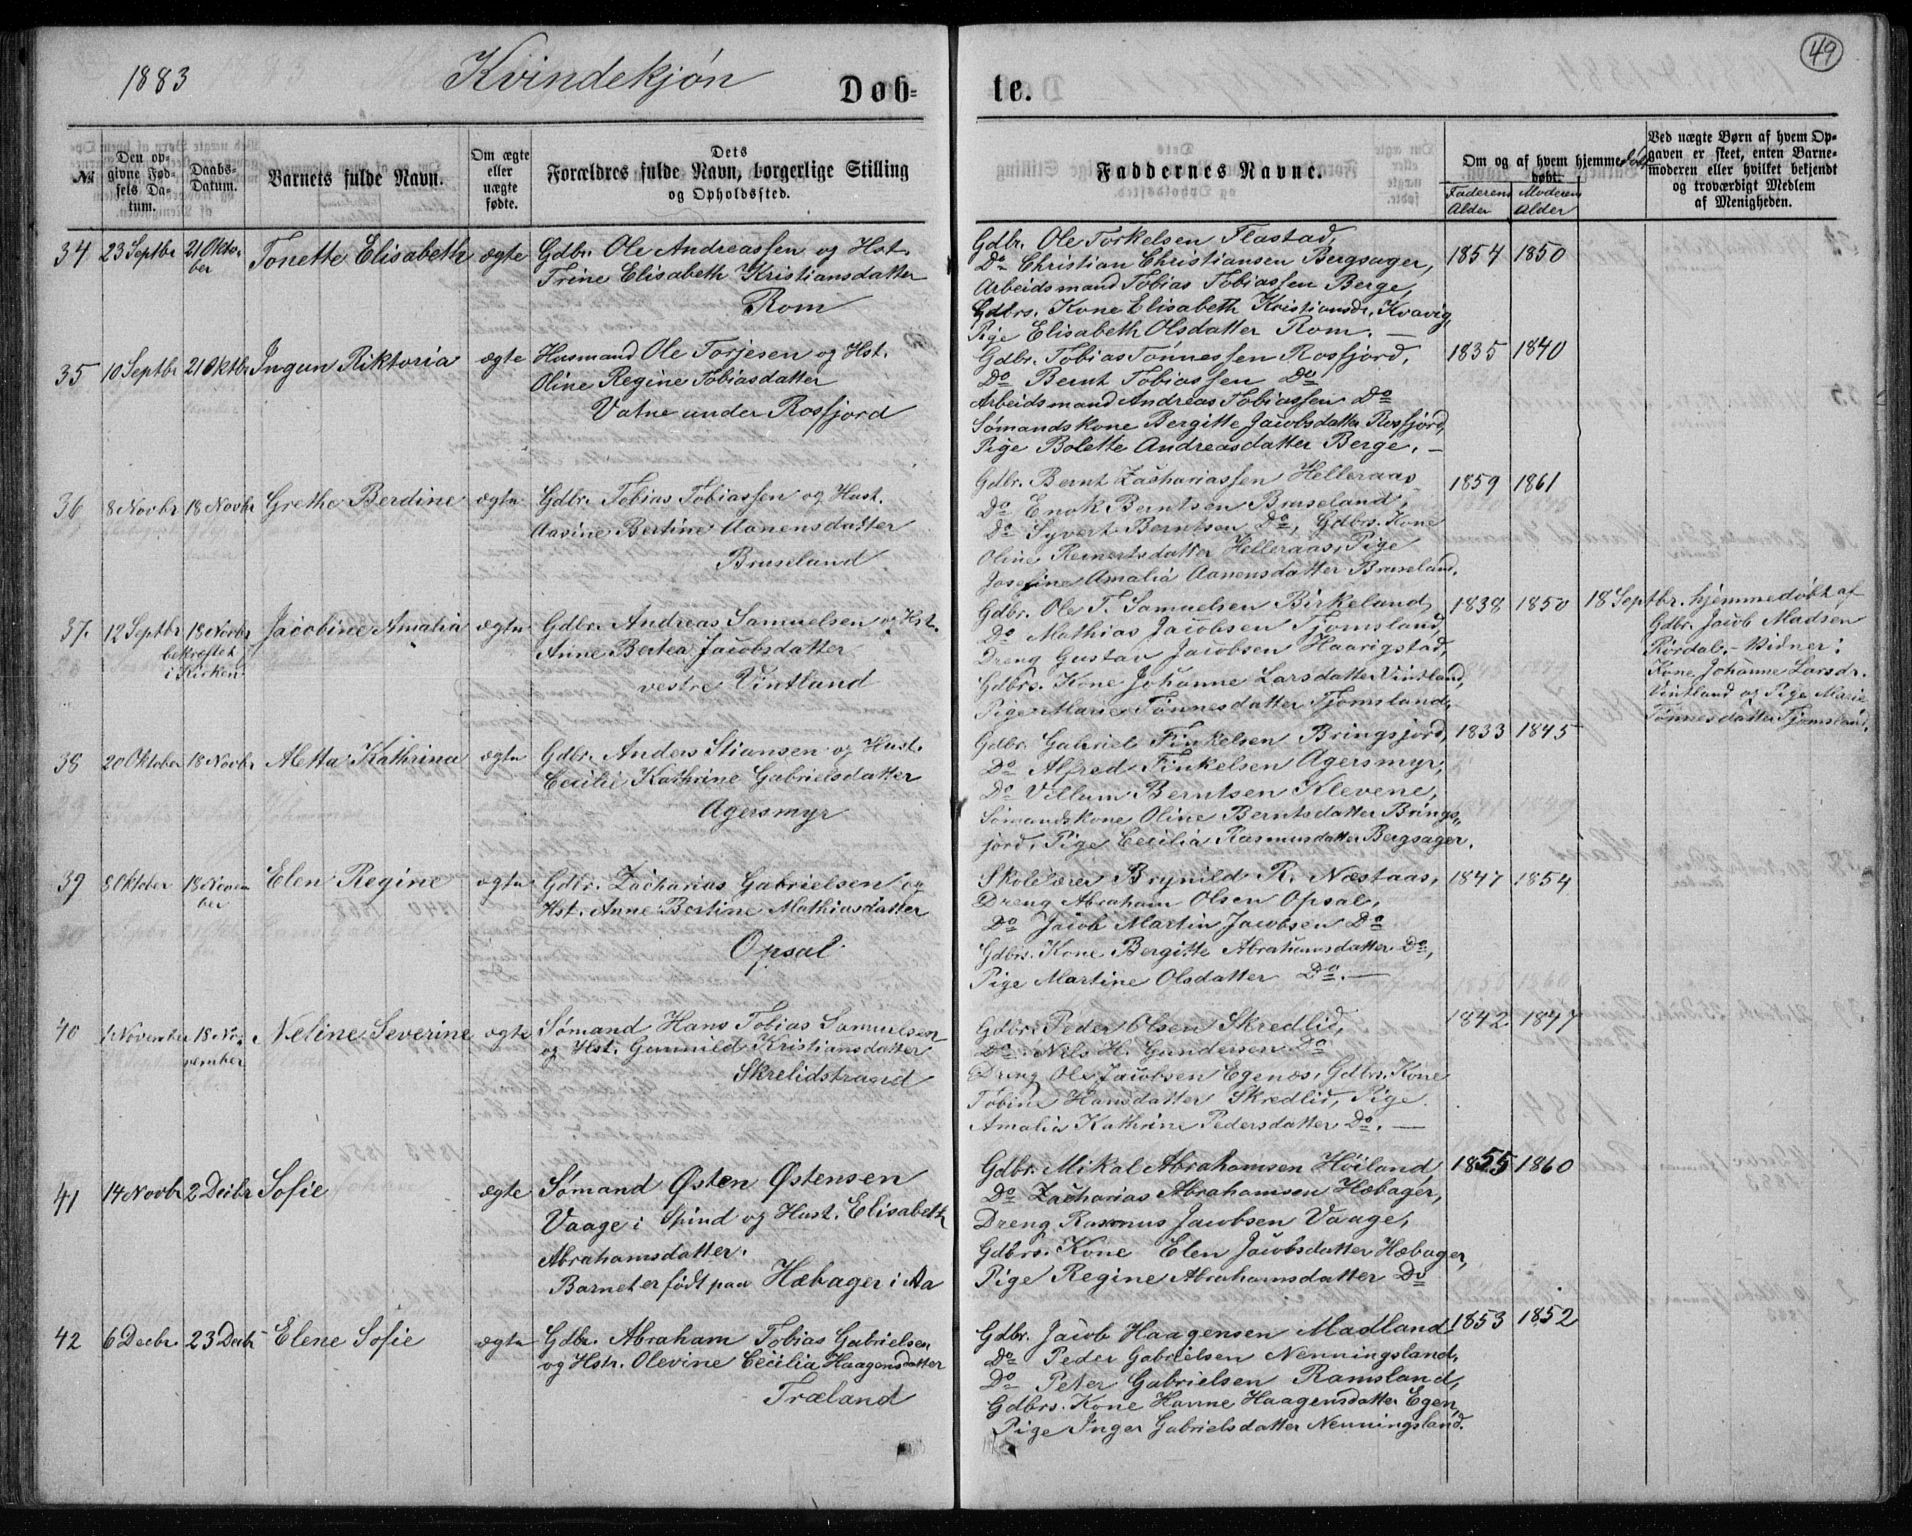 1883 Kvindekjøn Døb- te. 49
№
Den op-
givne Fød-
sels Da-
tum.
Daabs-
Datum.
Barnets fulde Navn.
Om ægte
eller
uægte
fødte.
Dets
Forældres fulde Navn, borgerlige Stilling
og Opholdssted.
Faddernes Navne.
Om og af hvem hjemmedøbt
døbt.
Faderens
Alder
Moderens
Alder
Ved uægte Børn af hvem Op-
gaven er skeet, enten Barne-
moderen eller hvilket bekjendt
og troværdigt Medlem
af Menigheden.
34 23 Septbr 21 Okto-
ber
Tonette Elisabeth ægte
Gdbr. Ole Andreassen og Hst.
Trine Elisabeth Kristiansdatter
Rom
Gdbr. Ole Torkelsen Flastad,
Do Christian Christiansen Bergsager,
Arbeidsmand Tobias Tobiassen Berge,
Gdbrs. Kone Elisabeth Kristiansdr. Kvavig,
Pige Elisabeth Olsdatter Rom. —
1854 1850
35 10 Septbr 21 Oktbr Ingun Riktoria ægte
Husmand Ole Torjesen og Hst.
Oline Regine Tobiasdatter
Vatne under Rosfjord
Gdbr. Tobias Tønnessen Rosfjord,
Do Bernt Tobiassen Do
Arbeidsmand Andreas Tobiassen Do
Sømandskone Bergitte Jacobsdatter Rosfjord,
Pige Bolette Andreasdatter Berge. —
1835 1840
36 8 Novbr 18 Novbr Grethe Berdine ægte
Gdbr. Tobias Tobiassen og Hust.
Aasine Bertine Aanensdatter
Bruseland
Gdbr. Bernt Zachariassen Helleraas
Do Enok Berntsen Bruseland,
Do Syvert Berntsen Do, Gdbrs. Kone
Oline Reinertsdatter Helleraas, Pige
Josefine Amalia Aanensdatter Bruseland.
1859 1861
37. 12 Septbr 18 Novbr
bekræftet
i Kirken
Jacobine Amalia ægte
Gdbr. Andreas Samuelsen og Hst.
Anne Bertea Jacobsdatter
vestre Vintland
Gdbr. Ole T. Samuelsen Birkeland,
Do Mathias Jacobsen Tjomsland,
Dreng Gustav Jacobsen Haarigstad,
Gdbrs. Kone Johanne Larsdatter Vintland,
Pige Marie Tønnesdatter Tjomsland.
1838 1850
18 Septbr. hjemmedøbt af
Gdbr. Jacob Madsen
Rørdal. – Vidner:
Kone Johanne Larsdr.
Vintland og Pige Marie
Tønnesdatter Tjomsland.
38 20 Oktober 18 Novbr Aletta Kathrina ægte
Gdbr. Anders Stiansen og Hust.
Cecilie Kathrine Gabrielsdatter
Agersmyr
Gdbr. Gabriel Finkelsen Bringsjord,
Do Alfred Finkelsen Agersmyr,
Do Villum Berntsen Klevene,
Sømandskone Oline Berntsdatter Brings-
jord, Pige Cecilia Rasmusdatter Bergsager.
1833 1845
39 8 Oktober 18 Novem
ber
Elen Regine ægte
Gdbr. Zacharias Gabrielsen og
Hst. Anne Bertine Mathiasdatter
Opsal.
Skolelærer Brynild R. Næstaas,
Dreng Abraham Olsen Opsal,
Do Jacob Martin Jacobsen Do
Gdbrs. Kone Bergitte Abrahamsdatter Do,
Pige Martine Olsdatter Do. —
1847 1854
40 1. November 18 No-
vember
Neline Severine ægte
Sømand Hans Tobias Samuelsen
og Hst. Gunnild Kristiansdatter
Skrelidstrand
Gdbr. Peder Olsen Skredlid,
Do Nils H. Gundersen Do
Dreng Ole Jacobsen Egenæs, Gdbrs. Kone
Tobine Hansdatter Skredlid, Pige
Amalia Kathrine Pedersdatter Do. —
1842 1847
41 14 Novbr 2 Decbr Sofie ægte
Sømand Østen Østensen
Vaage i Spind og Hust. Elisabeth
Abrahamsdatter.
Barnet er født paa Hæbager i Aa
Gdbr. Mikal Abrahamsen Høiland,
Do Zacharias Abrahamsen Hæbager,
Dreng Rasmus Jacobsen Vaage,
Gdbrs. Kone Elen Jacobsdatter Hæbager,
Pige Regine Abrahamsdatter Do
1855 1860
42 6 Decbr 23 Decbr Elene Sofie ægte
Gdbr. Abraham Tobias Gabrielsen
og Hstr. Olevine Cecilia Haagensdatter
Træland
Gdbr. Jacob Haagensen Madland
Do Peder Gabrielsen Nenningsland,
Do Peter Gabrielsen Ramsland,
Gdbrs. Kone Hanne Haagensdatter Egen,
Pige Inger Gabrielsdatter Nenningsland.
1853 1852